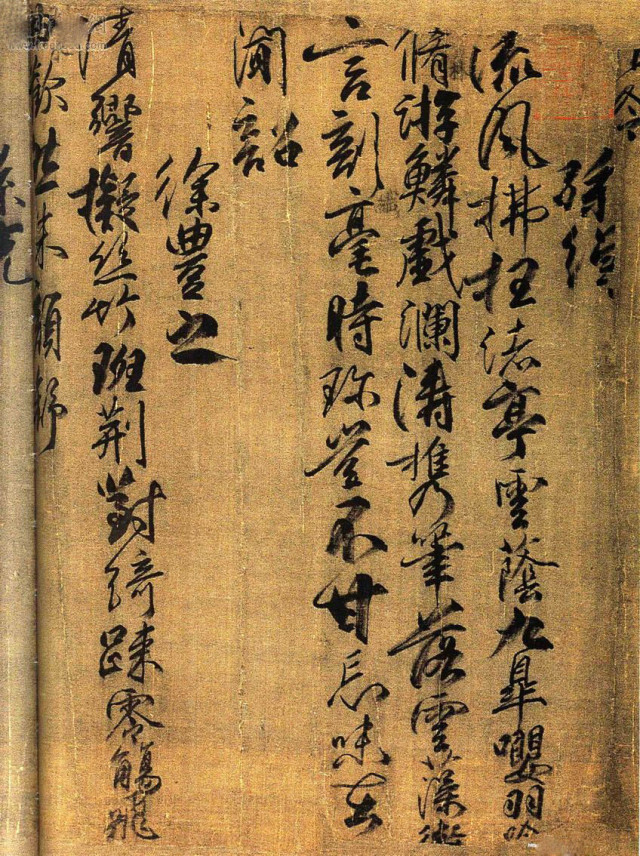 孫綽
流風拂枉渚亭雲蔭九皐嚶羽吟
脩游鱗戲瀾濤攜筆落雲藻微
言剖毫時珍豈不甘忘味在
聞韶
徐豐之
清響擬絲竹班荊對綺疎零觴飛
歡然朱顏舒